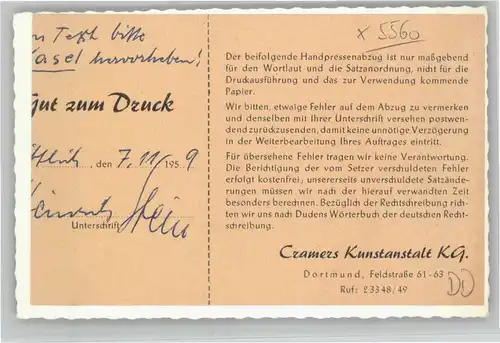 x 5560
Text bitte
hervorheben!
Gut zum Druck
, den 7.11.1959
Unterschrift
Der beifolgende Handpressenabzug ist nur maßgebend
für den Wortlaut und die Satzanordnung, nicht für die
Druckausführung und das zur Verwendung kommende
Papier.
Wir bitten, etwaige Fehler auf dem Abzug zu vermerken
und denselben mit Ihrer Unterschrift versehen postwen-
dend zurückzusenden, damit keine unnötige Verzögerung
in der Weiterbearbeitung Ihres Auftrages eintritt.
Für übersehene Fehler tragen wir keine Verantwortung.
Die Berichtigung der vom Setzer verschuldeten Fehler
erfolgt kostenfrei; unsererseits unverschuldete Satzände-
rungen müssen wir nach der hierauf verwandten Zeit
besonders berechnen. Bezüglich der Rechtschreibung rich-
ten wir uns nach Dudens Wörterbuch der deutschen Recht-
schreibung.
Cramers Kunstanstalt KG.
Dortmund, Feldstraße 61-63
Ruf: 23348/49